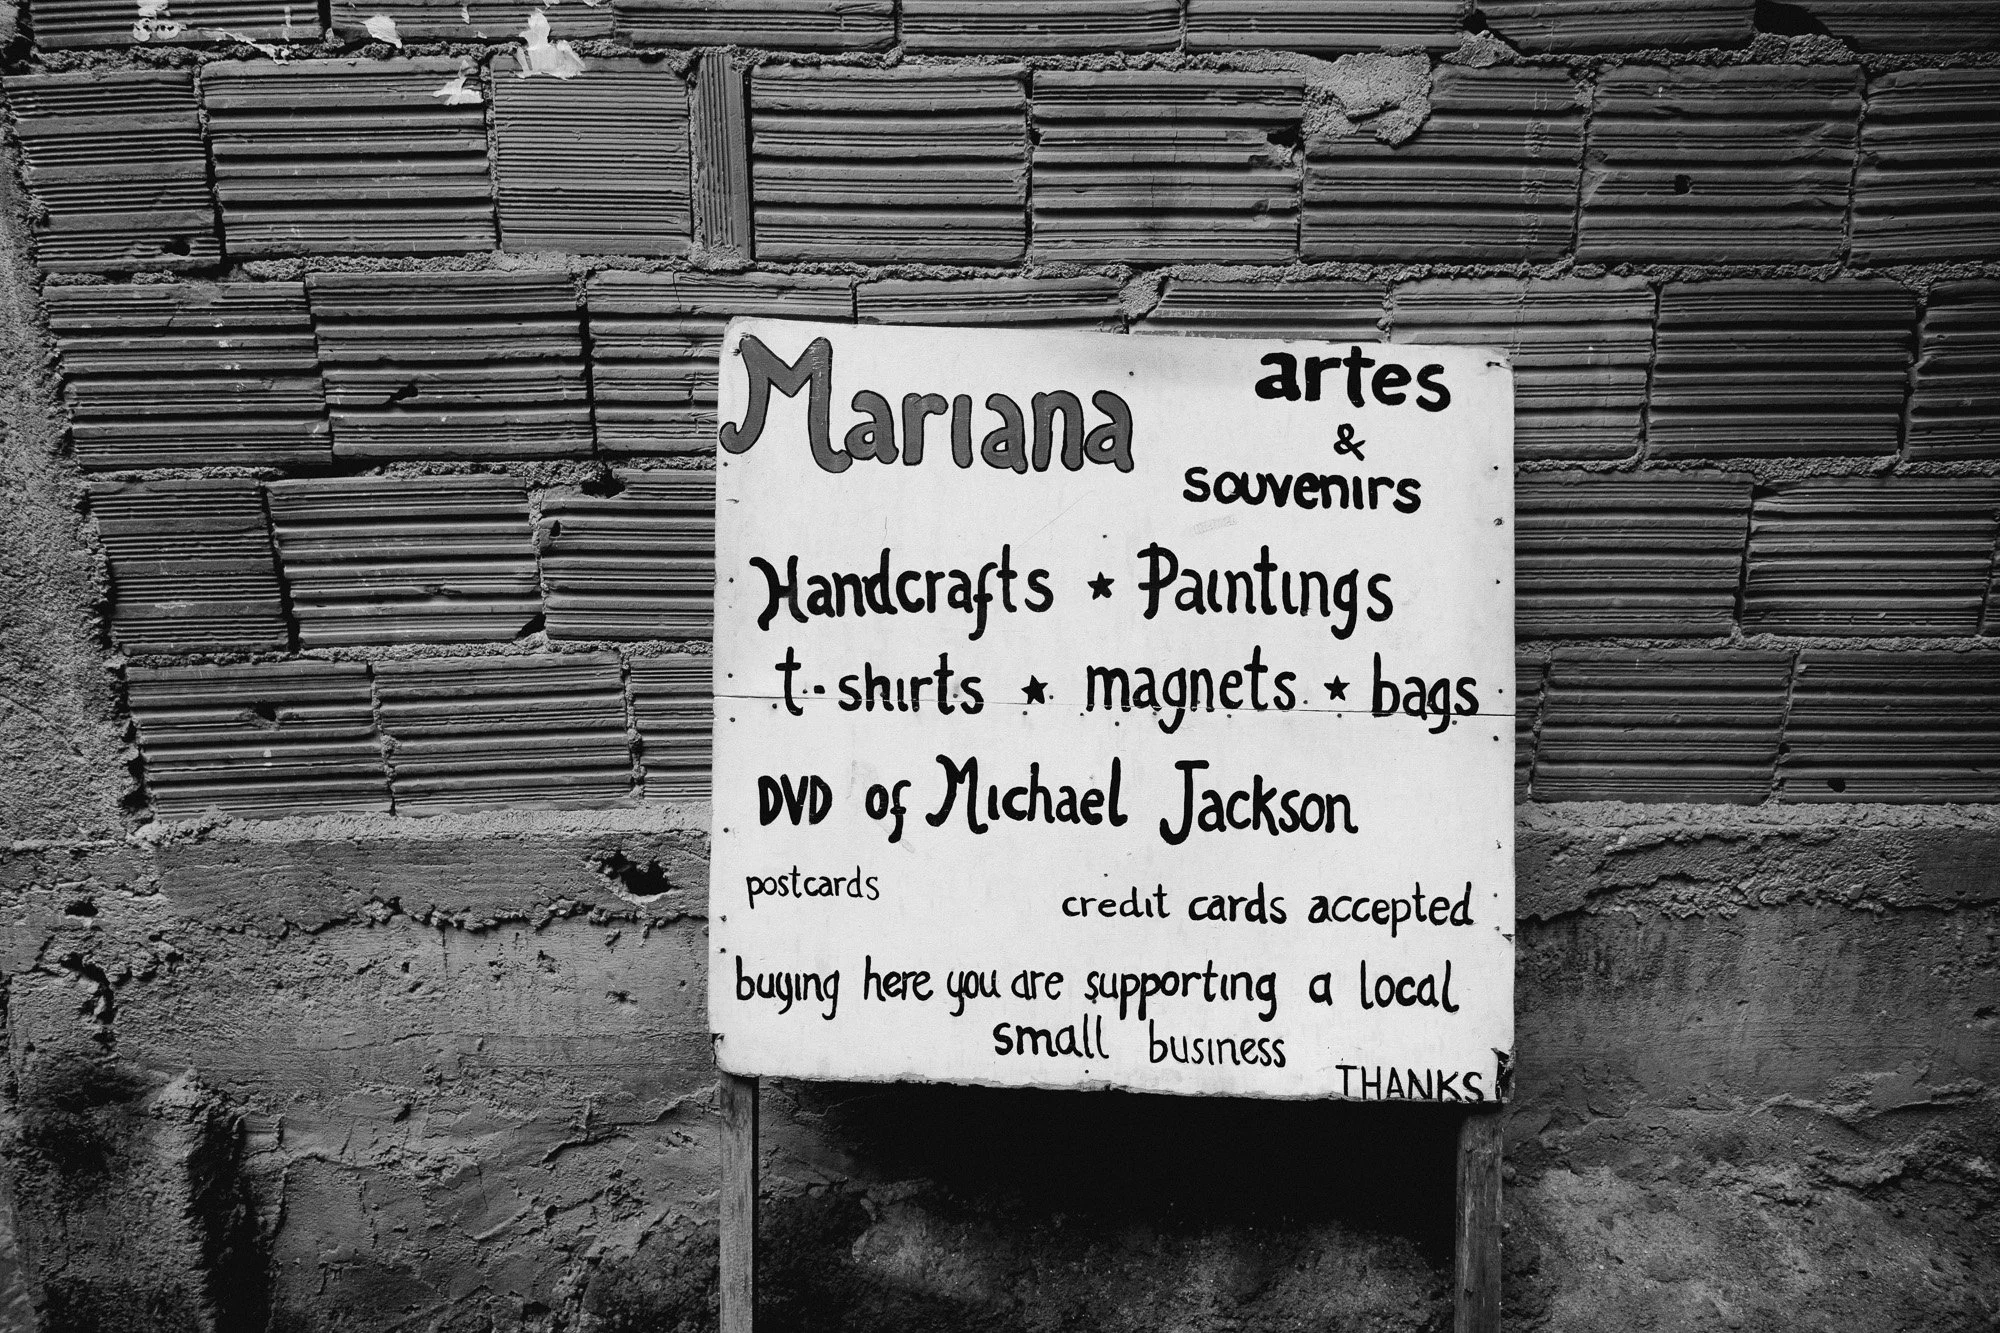 Mariana
artes
&
souvenirs
Handcrafts ★ Paintings
t-shirts ★ magnets ★ bags
DVD of Michael Jackson
postcards
credit cards accepted
buying here you are supporting a local
small business
THANKS